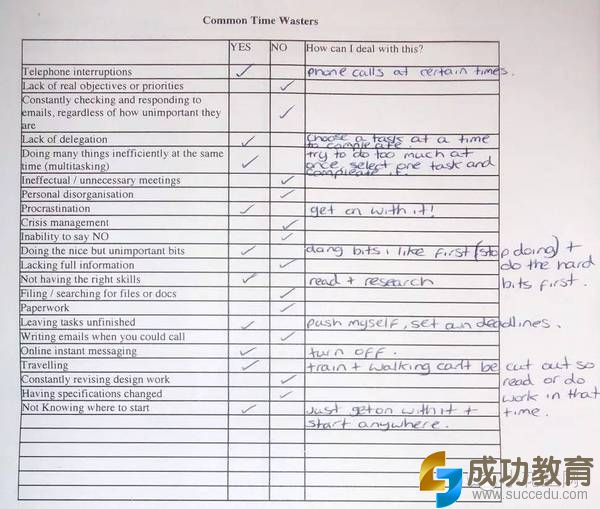 Common Time Wasters
YES NO How can I deal with this?
Telephone interruptions ✓ phone calls at certain times.
Lack of real objectives or priorities ✓
Constantly checking and responding to
emails, regardless of how unimportant they ✓
are
Lack of delegation ✓ Choose a task at a time
to compleate.
Doing many things inefficiently at the same ✓ try to do too much at
time (multitasking) once, select one task and
compleate it.
Ineffectual / unnecessary meetings ✓
Personal disorganisation ✓
Procrastination ✓ get on with it!
Crisis management ✓
Inability to say NO ✓
Doing the nice but unimportant bits ✓ doing bits i like first (stop doing) +
do the hard
bits first.
Lacking full information ✓
Not having the right skills ✓ read + research
Filing / searching for files or docs ✓
Paperwork ✓
Leaving tasks unfinished ✓ push myself, set own deadlines.
Writing emails when you could call ✓
Online instant messaging ✓ turn off.
Travelling ✓ train + walking cant be cut out so
read or do
work in that
time.
Constantly revising design work ✓
Having specifications changed ✓
Not Knowing where to start ✓ Just get on with it +
start anywhere.
成功教育
www.succedu.com